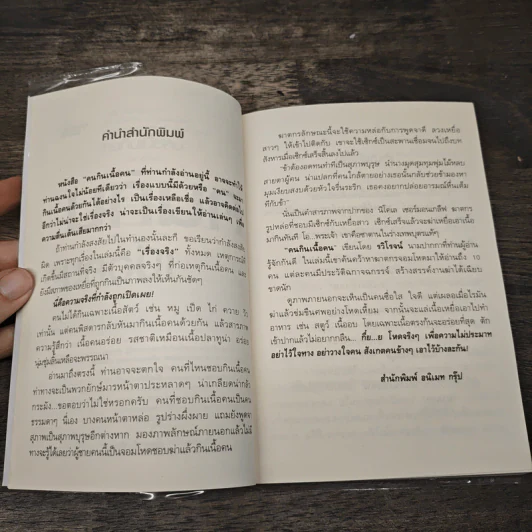 คำนำสำนักพิมพ์
หนังสือ "คนกินเนื้อคน" ที่ท่านกำลังอ่านอยู่นี้ อาจจะทำให้
ท่านฉงนใจไม่น้อยทีเดียวว่า เรื่องแบบนี้มีด้วยหรือ "คน" จะมา
กินเนื้อคนด้วยกันได้อย่างไร เป็นเรื่องเหลือเชื่อ แล้วอาจคิดต่อไป
อีกว่าไม่น่าจะใช่เรื่องจริง น่าจะเป็นเรื่องเขียนให้อ่านเล่นๆ เพื่อ
ความตื่นเต้นเสียมากกว่า
ถ้าท่านกำลังสงสัยไปในทำนองนั้นละก็ ขอเรียนว่ากำลังสงสัย
ผิด เพราะทุกเรื่องในเล่มนี้คือ "เรื่องจริง" ทั้งหมด เหตุการณ์ที่
เกิดขึ้นมีสถานที่จริง มีตัวบุคคลจริงๆ ที่ก่อเหตุกินเนื้อคน และ
ยังมีสภาพของเหยื่อที่ถูกกินเป็นภาพลงให้เห็นกันชัดๆ
นี่คือความจริงที่กำลังถูกเปิดเผย!
คนไม่ได้กินเฉพาะเนื้อสัตว์ เช่น หมู เป็ด ไก่ ควาย วัว
เท่านั้น แต่คนพิสดารกลับหันมากินเนื้อคนด้วยกัน แล้วสารภาพ
ความรู้สึกว่า เนื้อคนอร่อย รสชาติเหมือนเนื้อปลาทูน่า อร่อย
นุ่มชุ่มลิ้นเหลือจะพรรณนา!
อ่านมาถึงตรงนี้ ท่านอาจจะตกใจ คนที่ไหนชอบกินเนื้อคน
ท่าทางจะเป็นพวกยักษ์มารหน้าตาประหลาดๆ น่าเกลียดน่ากลัว
กระมัง...ขอตอบว่าไม่ใช่หรอกครับ คนที่ชอบกินเนื้อคนเป็นคน
ธรรมดาๆ นี่เอง บางคนหน้าตาหล่อ รูปร่างผึ่งผาย แถมยังพูดจา
สุภาพเป็นสุภาพบุรุษอีกต่างหาก มองภาพลักษณ์ภายนอกแล้วไม่มี
ทางจะรู้ได้เลยว่าผู้ชายคนนี้เป็นจอมโหดชอบฆ่าแล้วกินเนื้อคน
ฆาตกรลักษณะนี้จะใช้ความหล่อกับการพูดจาดี ลวงเหยื่อ
สาวๆ ให้เข้าไปติดกับ เขาจะใช้เซ็กซ์เป็นสะพานเชื่อมจนไปถึงบท
สังหารเมื่อเซ็กซ์เสร็จสิ้นลงไปแล้ว
"ข้าต้องอดทนทำทีเป็นสุภาพบุรุษ นำนางผุดลุกผุดนั่งไปที่หลบ
สายตาผู้คน น่าแปลกที่คนใกล้ตายอย่างเธอนั้นกลับช่วยข้ามองหา
มุมเงียบสงบด้วยหัวใจรื่นรมย์ เธอคงอยากปล่อยอารมณ์ตื่นเต้น
ทีกับข้า"
นั่นเป็นคำสารภาพจากปากของ นิโคเล เชอร์มอนเกลีฟ ฆาตกร
รูปหล่อที่ชอบมีเซ็กซ์กับเหยื่อสาวๆ เซ็กซ์เสร็จแล้วจะฆ่าเหยื่อเอาเนื้อ
มากินทันที โอ..พระเจ้า เขาคือซาตานในร่างเทพบุตรแท้ๆ
"คนกินเนื้อคน" เขียนโดย จรีโรจน์ นามปากกาที่ท่านผู้อ่าน
รู้จักกันดี ในเล่มนี้เขาค้นคว้าหาฆาตกรจอมโหดมาให้อ่านถึง 10
คน แต่ละคนมีประวัติฉกาจฉกรรจ์ สร้างสรรค์งานฆ่าได้เฉียบ
ขาดนัก
ดูภายนอกจะเห็นเป็นคนซื่อใส ใจดี แต่เผลอเมื่อไรมัน
ฆ่าแล้วข่มขืนศพอย่างโหดเหี้ยม จากนั้นจะแล่เนื้อเหยื่อเอาไปทำ
อาหาร เช่น สตูว์ เนื้ออบ โดยเฉพาะเนื้อตรงก้นจะอร่อยที่สุด ตัก
เข้าปากแล้วไม่อยากกลืน... กึ๋ย...ย โหดจริงๆ เพื่อความไม่ประมาท
อย่าไว้ใจทาง อย่าวางใจคน สังเกตคนข้างๆ เอาไว้บ้างละกัน!
สำนักพิมพ์ อนิเมท กรุ๊ป